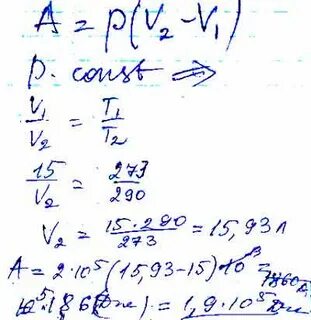 A = p(V₂ - V₁)
p. const ⇒
V₁/V₂ = T₁/T₂
15/V₂ = 273/290
V₂ = 15·290/273 = 15,93 л
A = 2·10⁵(15,93-15)10⁻³ =
= 1,9·10⁵